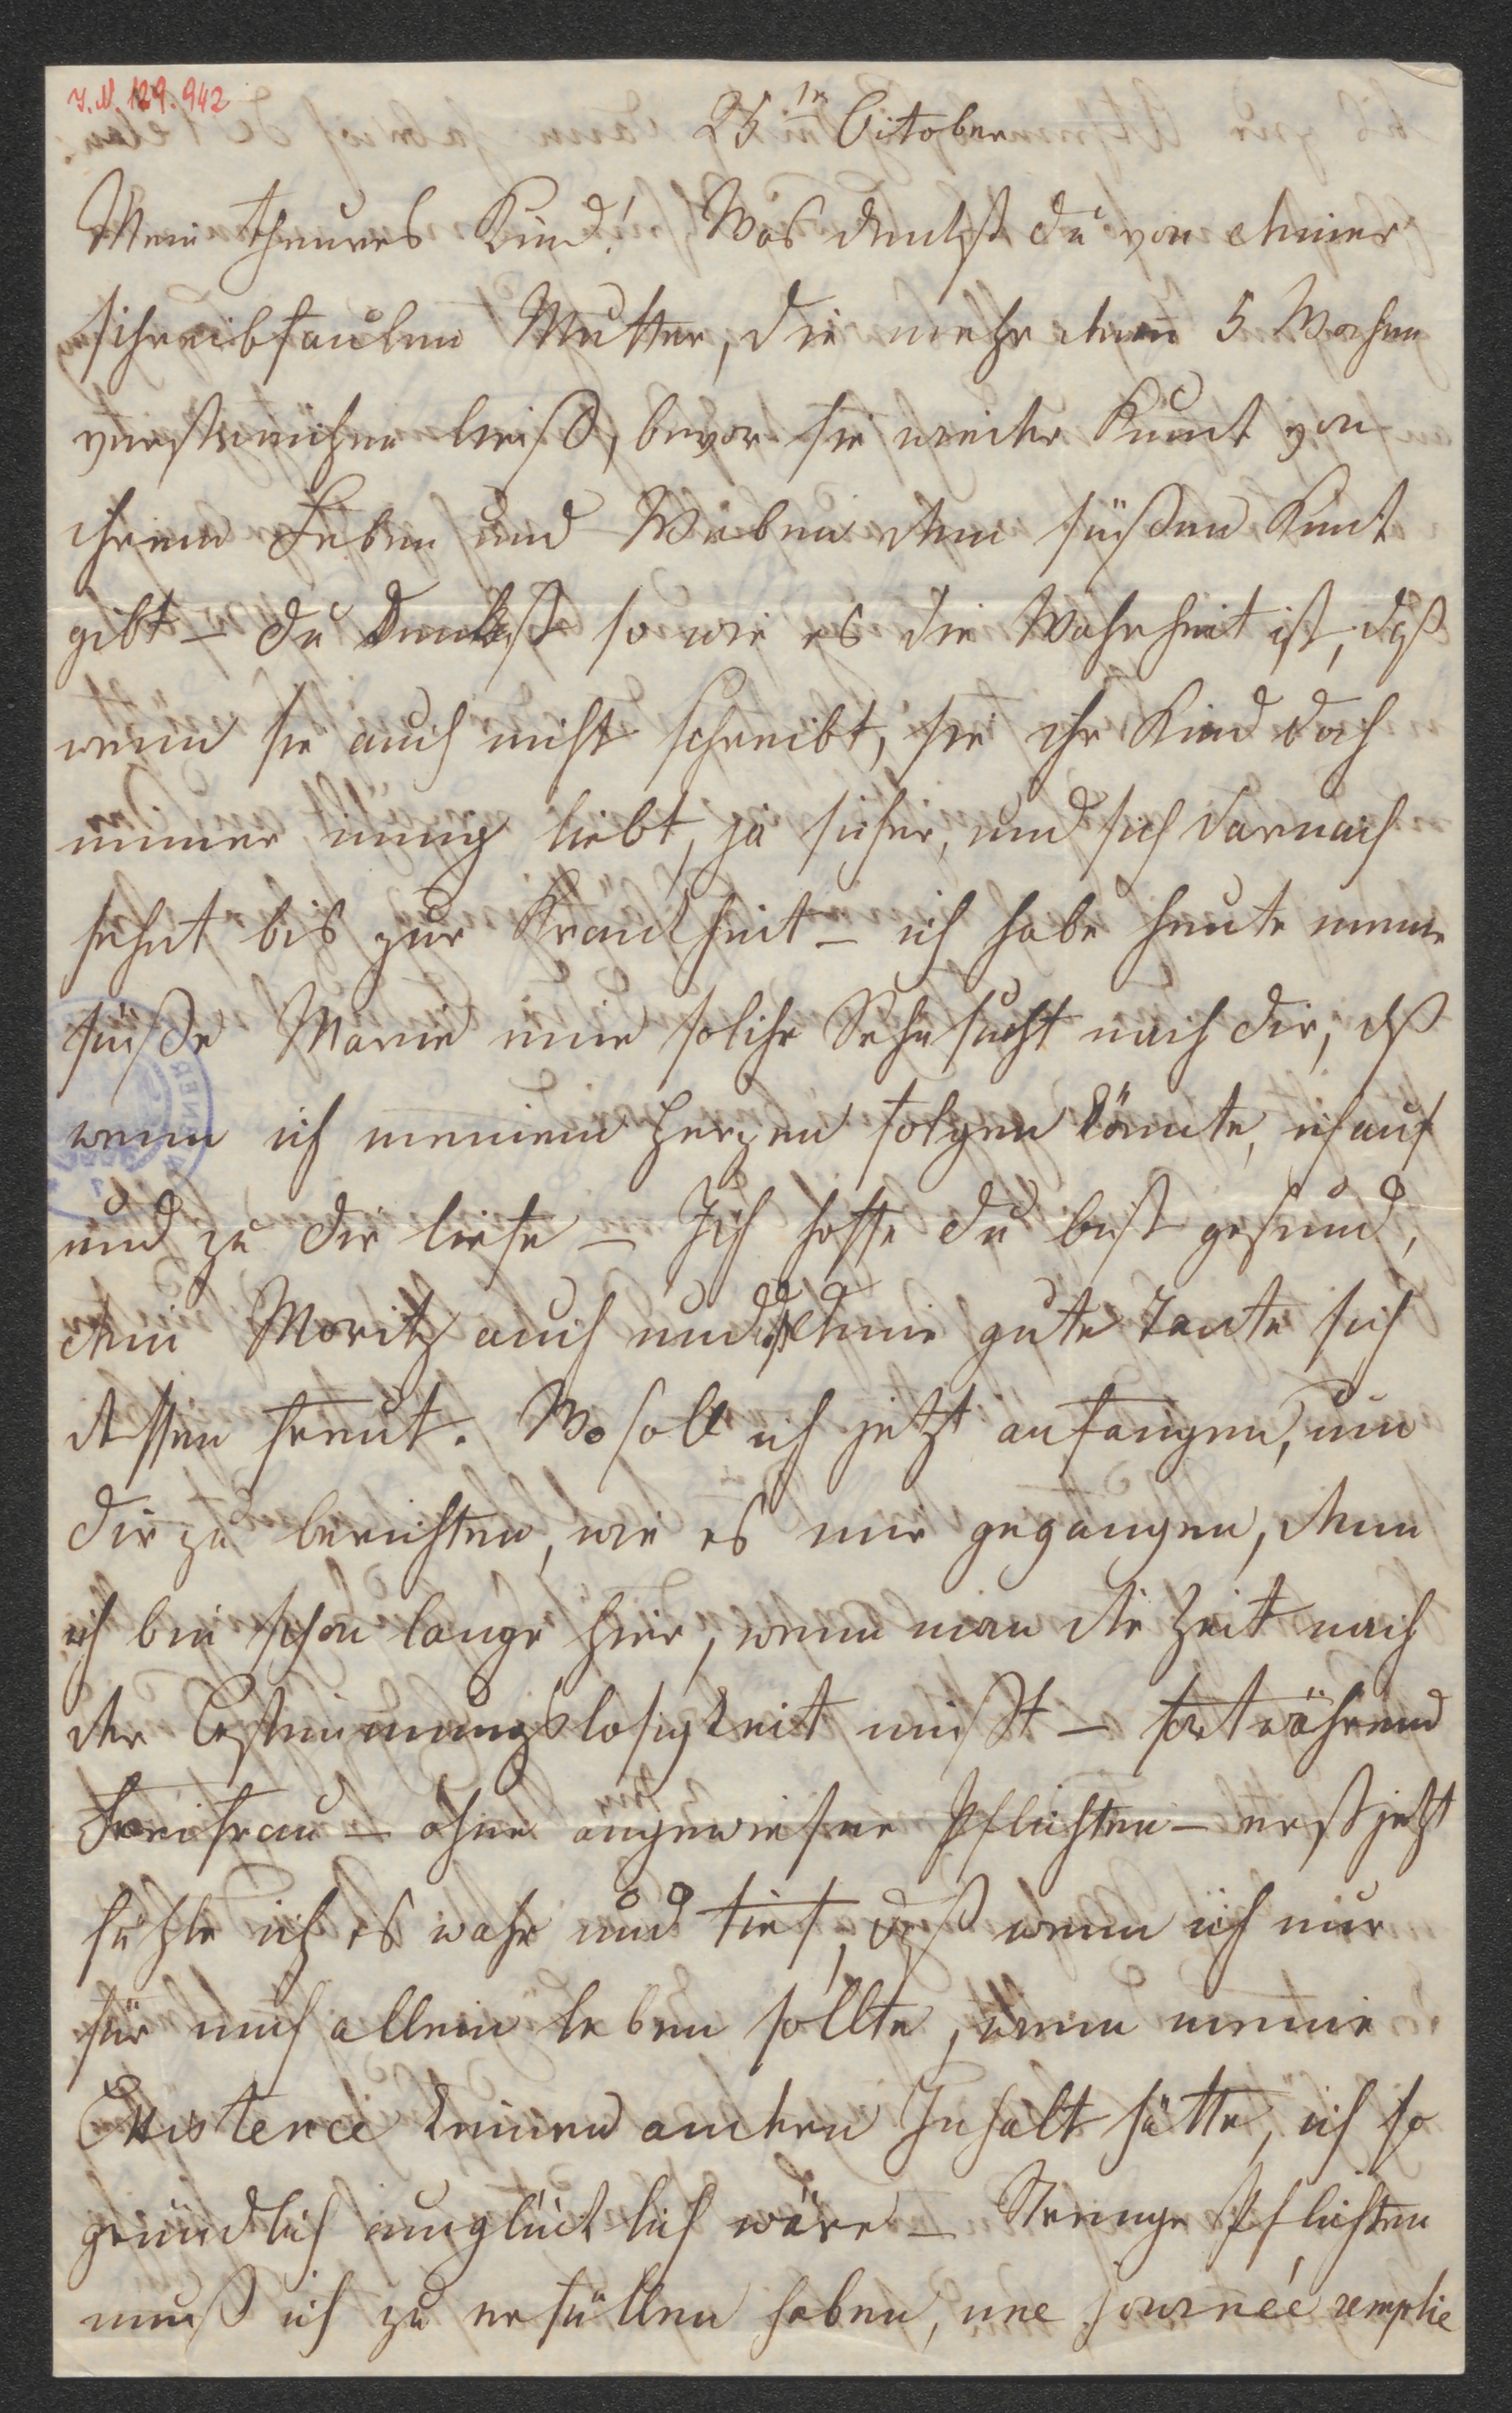 I. N. 129.942
25ten October
Mein theures Kind! Was denkst du von deiner
schreibfaulen Mutter, die mehr denn 5 Wochen
verstreichen ließ, bevor sie wieder Kunde von
ihrem Leben und Weben dem süßen Kind
gibt – du denkst so wie es die Wahrheit ist, daß
wenn sie auch nicht schreibt, sie ihr Kind doch
immer innig liebt, ja sicher, und sich darnach
sehnt bis zur Krankheit – ich habe heute meine
süße Marie eine solche Sehnsucht nach dir, dß
wenn ich meinem Herzen folgen könnte, ich auf
und zu dir liefe – Ich hoffe du bist gesund,
dein Moritz auch und deine gute Tante sich
dessen freut. Wo soll ich jetzt anfangen, um
dir zu berichten, wie es mir gegangen, denn
ich bin schon lange hier, wenn man die Zeit nach
der Bestimmungslosigkeit mißt – fortwährend
Freifrau – ohne angewiesene Pflichten – erst jetzt
fühle ich es wahr und tief, daß wenn ich nur
für mich allein leben sollte, wenn meine
Existence keinen andern Inhalt hätte, ich so
gründlich unglücklich wäre – Strenge Pflichten
muß ich zu erfüllen haben, une journée remplie